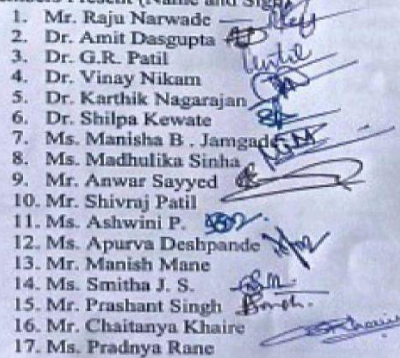 Present (Name and Sign
1. Mr. Raju Narwade
2. Dr. Amit Dasgupta
3. Dr. G.R. Patil
4. Dr. Vinay Nikam
5. Dr. Karthik Nagarajan
6. Dr. Shilpa Kewate
7. Ms. Manisha B . Jamgade
8. Ms. Madhulika Sinha
9. Mr. Anwar Sayyed
10. Mr. Shivraj Patil
11. Ms. Ashwini P.
12. Ms. Apurva Deshpande
13. Mr. Manish Mane
14. Ms. Smitha J. S.
15. Mr. Prashant Singh
16. Mr. Chaitanya Khaire
17. Ms. Pradnya Rane